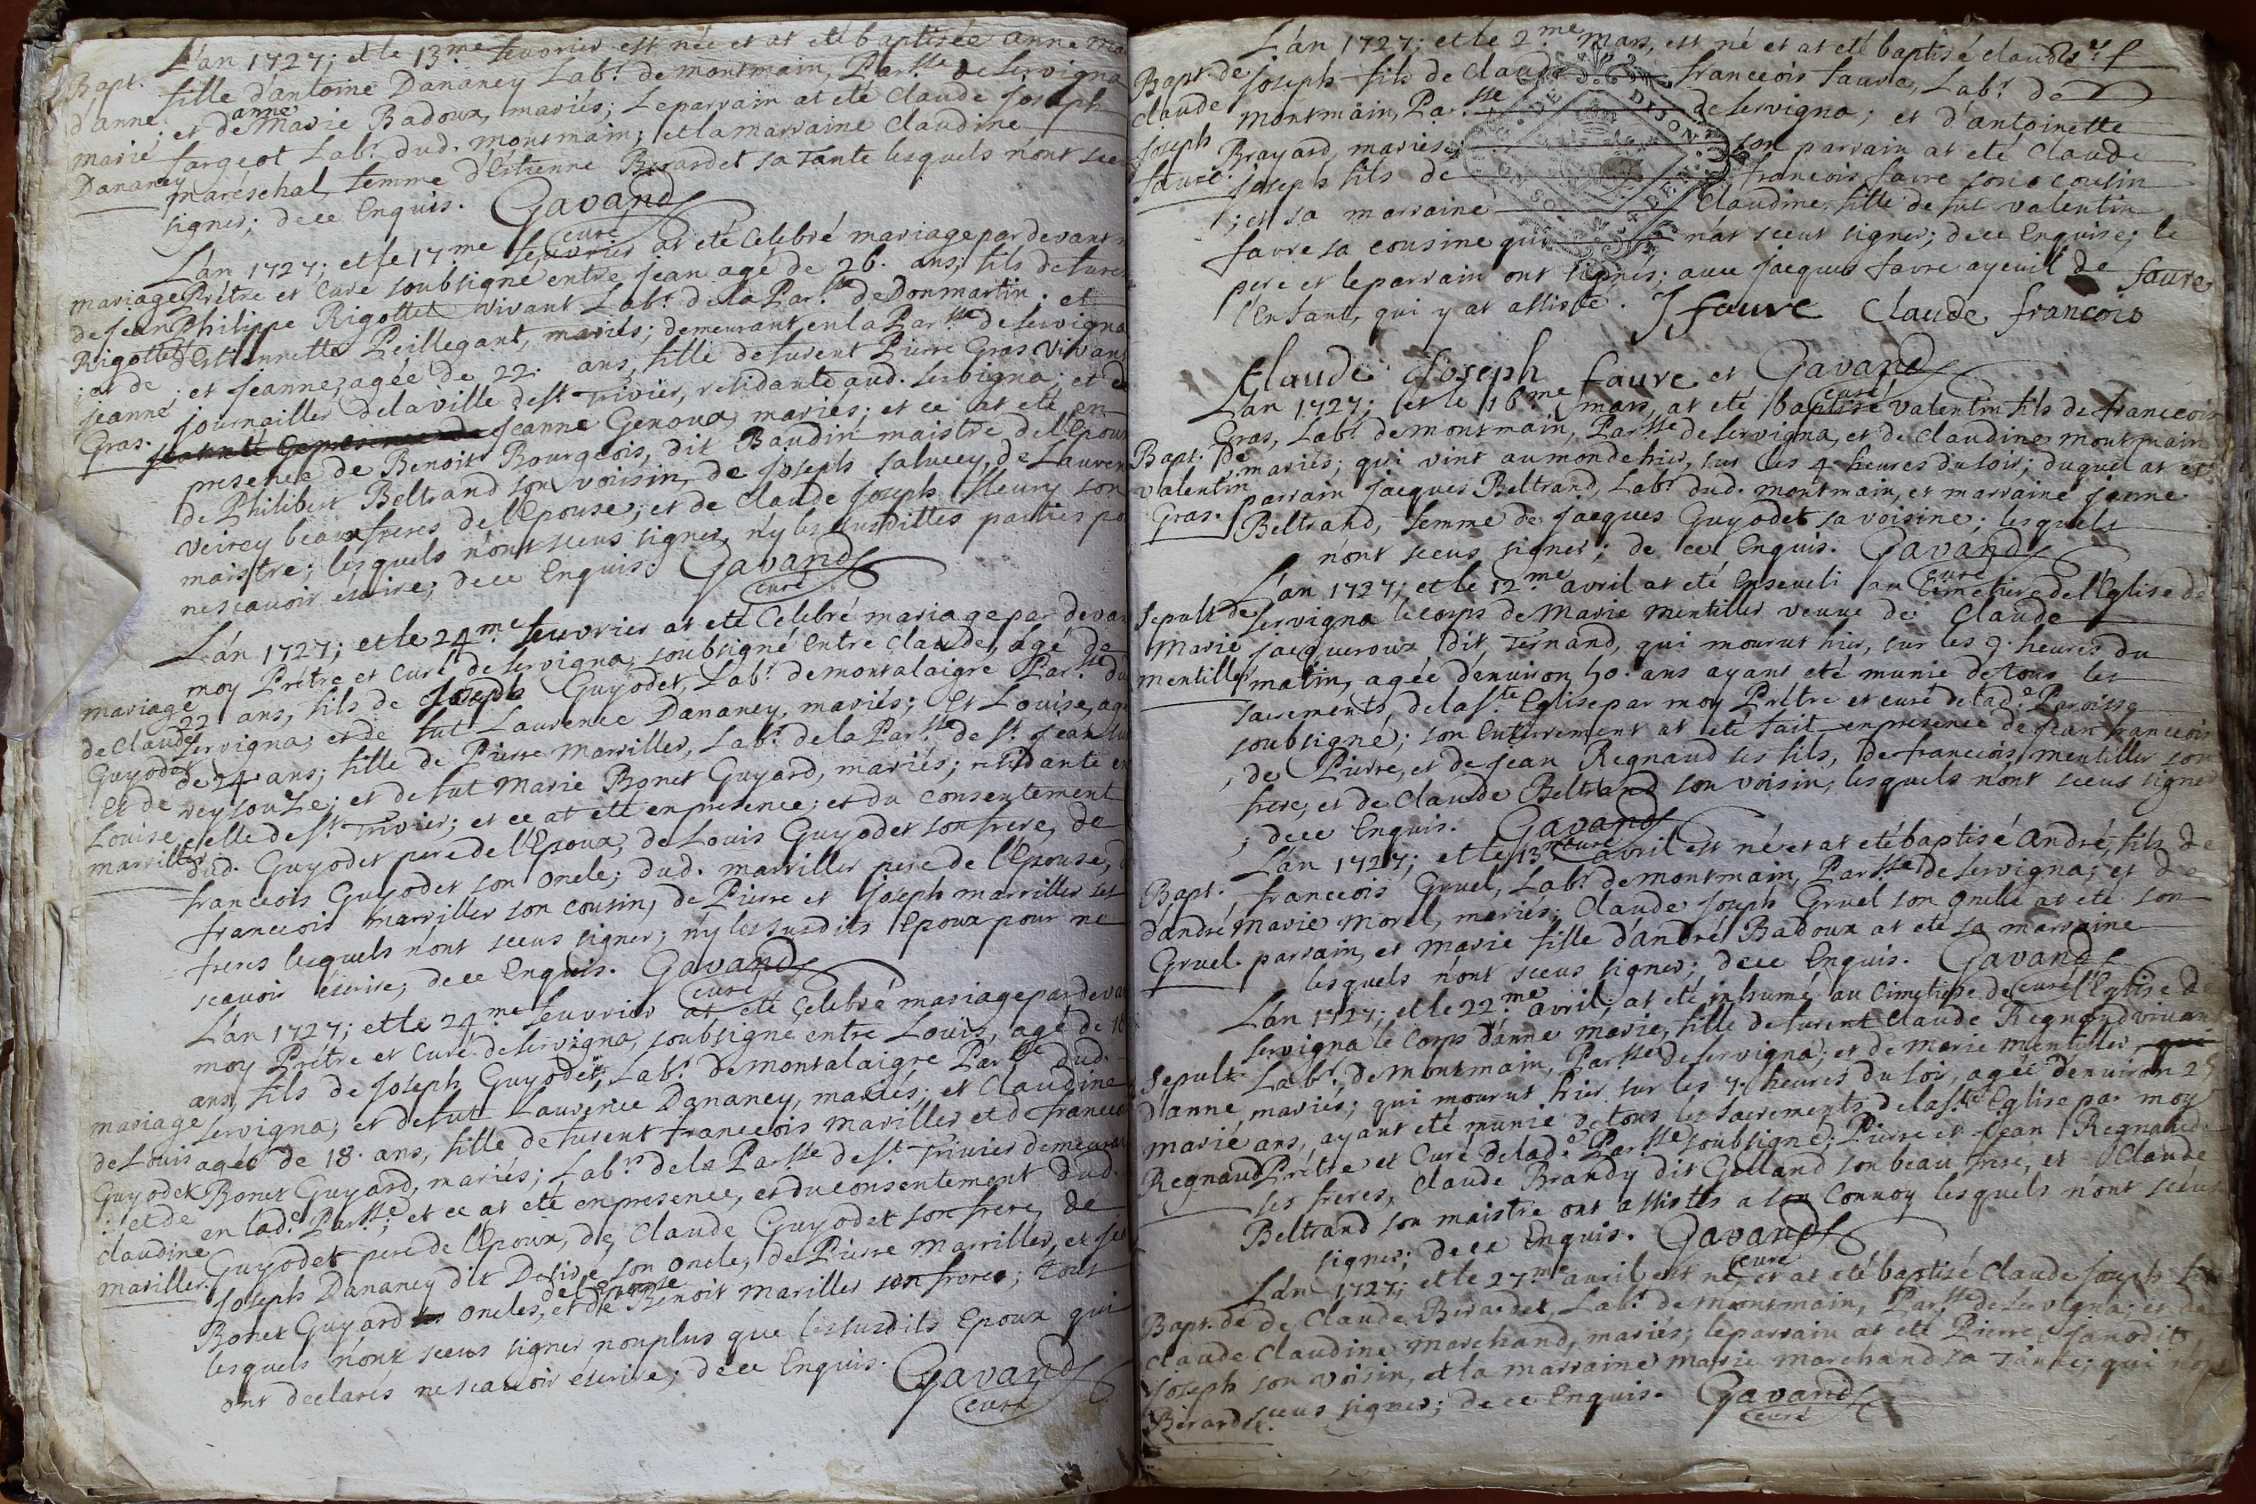 L'an 1727; et le 13.me feuvrier est née et at eté baptisée anne
Bapt. fille d'antoine Dananey Lab.r de montmain, Par.sse de servigna
d'anne et de anne Marie Badoux, mariés; le parrain at eté Claude Joseph
marie fargeot Lab.r dud. montmain; et la marraine Claudine
Dananey mareschal femme d'Estienne Berardet sa Tante lesquels n'ont sceu
signer; de ce Enquis. Gavand
curé
L'an 1727; et le 17.me feuvrier at eté Celebré mariage par devant
mariage Prêtre et Curé soubsigné entre jean agé de 26. ans; fils de furent
de Jean Philippe Rigottet vivant Lab.r de la Par.sse de Donmartin; et
Rigottet d'Estiennette Peillegant, mariés; demeurant en la Par.sse de servigna
; et de ; et Jeanne, agée de 22. ans, fille de furent Pierre Gras vivant
jeanne journaillier de la ville de st Trivier, residante aud. servigna; et de
Gras. Jeanne Genoux mariés; et ce at eté en
presence de Benoit Bourgeois, dit Baudin maistre de l'Epoux
de Philibert Beltrand son voisin, de Joseph Salucey, de Laurent
Veirey beaux freres de l'Epouse; et de Claude Joseph fleury son
maistre; lesquels n'ont sceus signer, n'y les susdittes parties po
ne scavoir écrire; de ce Enquis. Gavand
curé
L'an 1727; et le 24.me feuvrier at eté Celebré mariage par devan
moy Prêtre et Curé de servigna, soubsigné Entre Claude, agé de
mariage 22 ans, fils de Joseph Guyodet, Lab.r de montalaigre Par.sse du
de Claude servigna; et de fut Laurence Dananey, mariés; Et Louise, agé
Guyodet de 24 ans; fille de Pierre marriller, Lab.r de la Par.sse de s.t Jean
et de reysouze; et de fut Marie Bonet Guyard, mariés; residante en
Louise celle de s.t Trivier; et ce at eté en presence; et du consentement
marriller dud. Guyodet pere de l'Epoux, de Louis Guyodet son frere, de
francois Guyodet son oncle; dud. marriller pere de l'Epouse, d
francois marriller son cousin, de Pierre et Joseph marriller ses
freres lesquels n'ont sceus signer; n'y les susdits Epoux pour ne
scavoir écrire; de ce Enquis. Gavand
curé
L'an 1727; et le 24.me feuvrier at eté Celebré mariage par devan
moy Prêtre et Curé de servigna, soubsigné entre Louis, agé de 18
ans, fils de Joseph Guyodet, Lab.r de montalaigre Par.sse dud.
mariage servigna; et de fut Laurence Dananey, mariés; et Claudine
de Louis agée de 18. ans, fille de furent francois mariller et de francoi
Guyodet Bonet Guyard, mariés; Lab.rs de la Par.sse de s.t Trivier demeurant
; et de en lad.e Par.sse; et ce at eté en presence, et du consentement dud.
claudine Guyodet pere de l'Epoux, de Claude Guyodet son frere, de
mariller. Joseph Dananey dit Desire son oncle, de Pierre marriller, et
Bonet Guyard oncles, de l'Epouse et de Benoit mariller son frere; tous
lesquels n'ont sceus signer non plus que les susdits Epoux qui
ont declarés ne scavoir écrire; de ce Enquis. Gavand
curé
L'an 1727; et le 2.me mars, est né et at eté baptisé claude
Bapt. de Joseph fils de Claude francois faure, Lab.r de
Claude montmain, Par.sse de servigna; et d'antoinette
Joseph Brayard, mariés; son parrain at eté Claude
faure. Joseph fils de francois favre son cousin
; et sa marraine Claudine, fille de fut valentin
favre sa cousine qui n'at sceut signer; de ce Enquise; le
pere et le parrain ont signés; avec Jacques favre ayeuil de
l'Enfant, qui y at assisté. J faure Claude francois faure
Claude Joseph faure et Gavand
curé
L'an 1727; et le 16.me mars, at eté baptisé valentin fils de francois
Gras, Lab.r de montmain, Par.sse de servigna, et de Claudine montmain
Bapt. de mariés; qui vint au monde hier, sur les 4. heures du soir; duquel at eté
valentin parrain Jacques Beltrand, Lab.r dud. montmain, et marraine jeanne
Gras. Beltrand, femme de Jacques Guyodet sa voisine; lesquels
n'ont sceus signer; de ce Enquis. Gavand
curé
L'an 1727; et le 12.me avril at eté Enseveli au Cimetiere de l'Eglise de
sepult. de servigna le corps de Marie mentiller veuve de Claude
Marie jacqueroux dit Fernand, qui mourut hier, sur les 9. heures du
mentiller matin, agée d'environ 50. ans ayant eté munie de tous les
sacrements de la s.te Eglise par moy Prêtre et curé de lad.e Paroisse
soubsigné; son Enterrement at eté fait en presence de Jean francois
, de Pierre, et de Jean Regnaud ses fils, de francois mentiller son
frere, et de Claude Beltrand son voisin, lesquels n'ont sceus signer
; de ce Enquis. Gavand
curé
L'an 1727; et le 13.me avril est né et at eté baptisé André, fils de
Bapt. francois Gruel, Lab.r de montmain, Par.sse de servigna; et de
d'andré Marie Morel, mariés; Claude Joseph Gruel son oncle at eté son
Gruel. parrain, et Marie fille d'André Badoux at eté sa marraine
lesquels n'ont sceus signer; de ce Enquis. Gavand
curé
L'an 1727; et le 22.me avril; at eté inhumé au Cimetiere de l'Eglise de
servigna le Corps d'anne marie, fille de furent Claude Regnaud vivant
sepult. Lab.r de montmain, Par.sse de servigna; et de marie mentiller
d'anne mariés; qui mourut hier sur les 7. heures du soir, agée d'environ 25
marie ans, ayant eté munie de tous les sacrements de la s.te Eglise par moy
Regnaud Prêtre et Curé de lad.e Par.sse soubsigné; Pierre et Jean Regnaud
ses freres, Claude Brandy dit Golland son beau frere, et Claude
Beltrand son maistre ont assistés a son Convoy lesquels n'ont sceus
signer; de ce Enquis. Gavand
curé
L'an 1727; et le 27.me avril est né, et at eté baptisé Claude Joseph fils
Bapt. de de Claude Berardet, Lab.r de montmain, Par.sse de servigna; et de
Claude Claudine marchand, mariés; le parrain at eté Pierre Janodit
Joseph son voisin, et la marraine marie marchand sa Tante; qui n'ont
Berardet. sceus signer; de ce Enquis. Gavand
curé